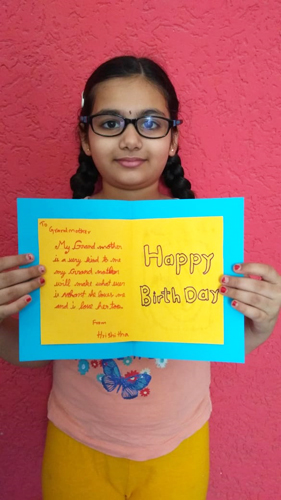 To
Grandmother,
My Grand mother
is a very kind to me
my Grand mother
will make what ever
is I want she loves me
and i love her too.
From
Hrithika
Happy
Birth Day